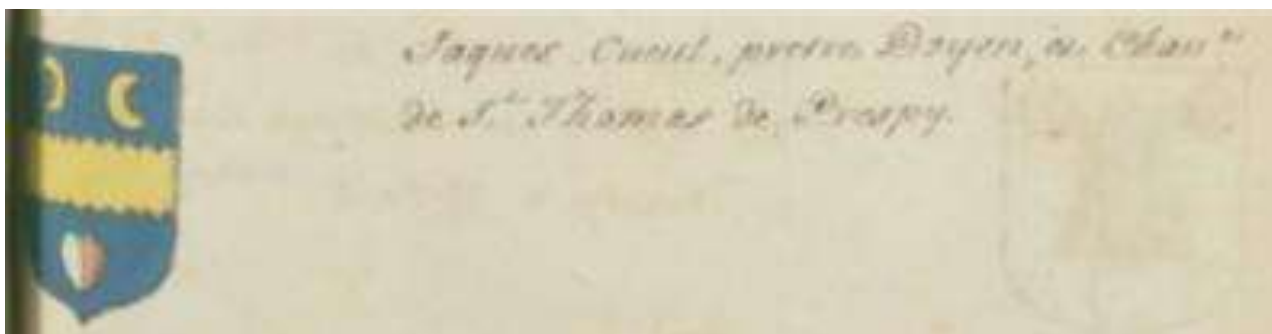 Jaques Cueul, prestre Doyen, et Chan.ne
de S.t Thomas de Crespy.